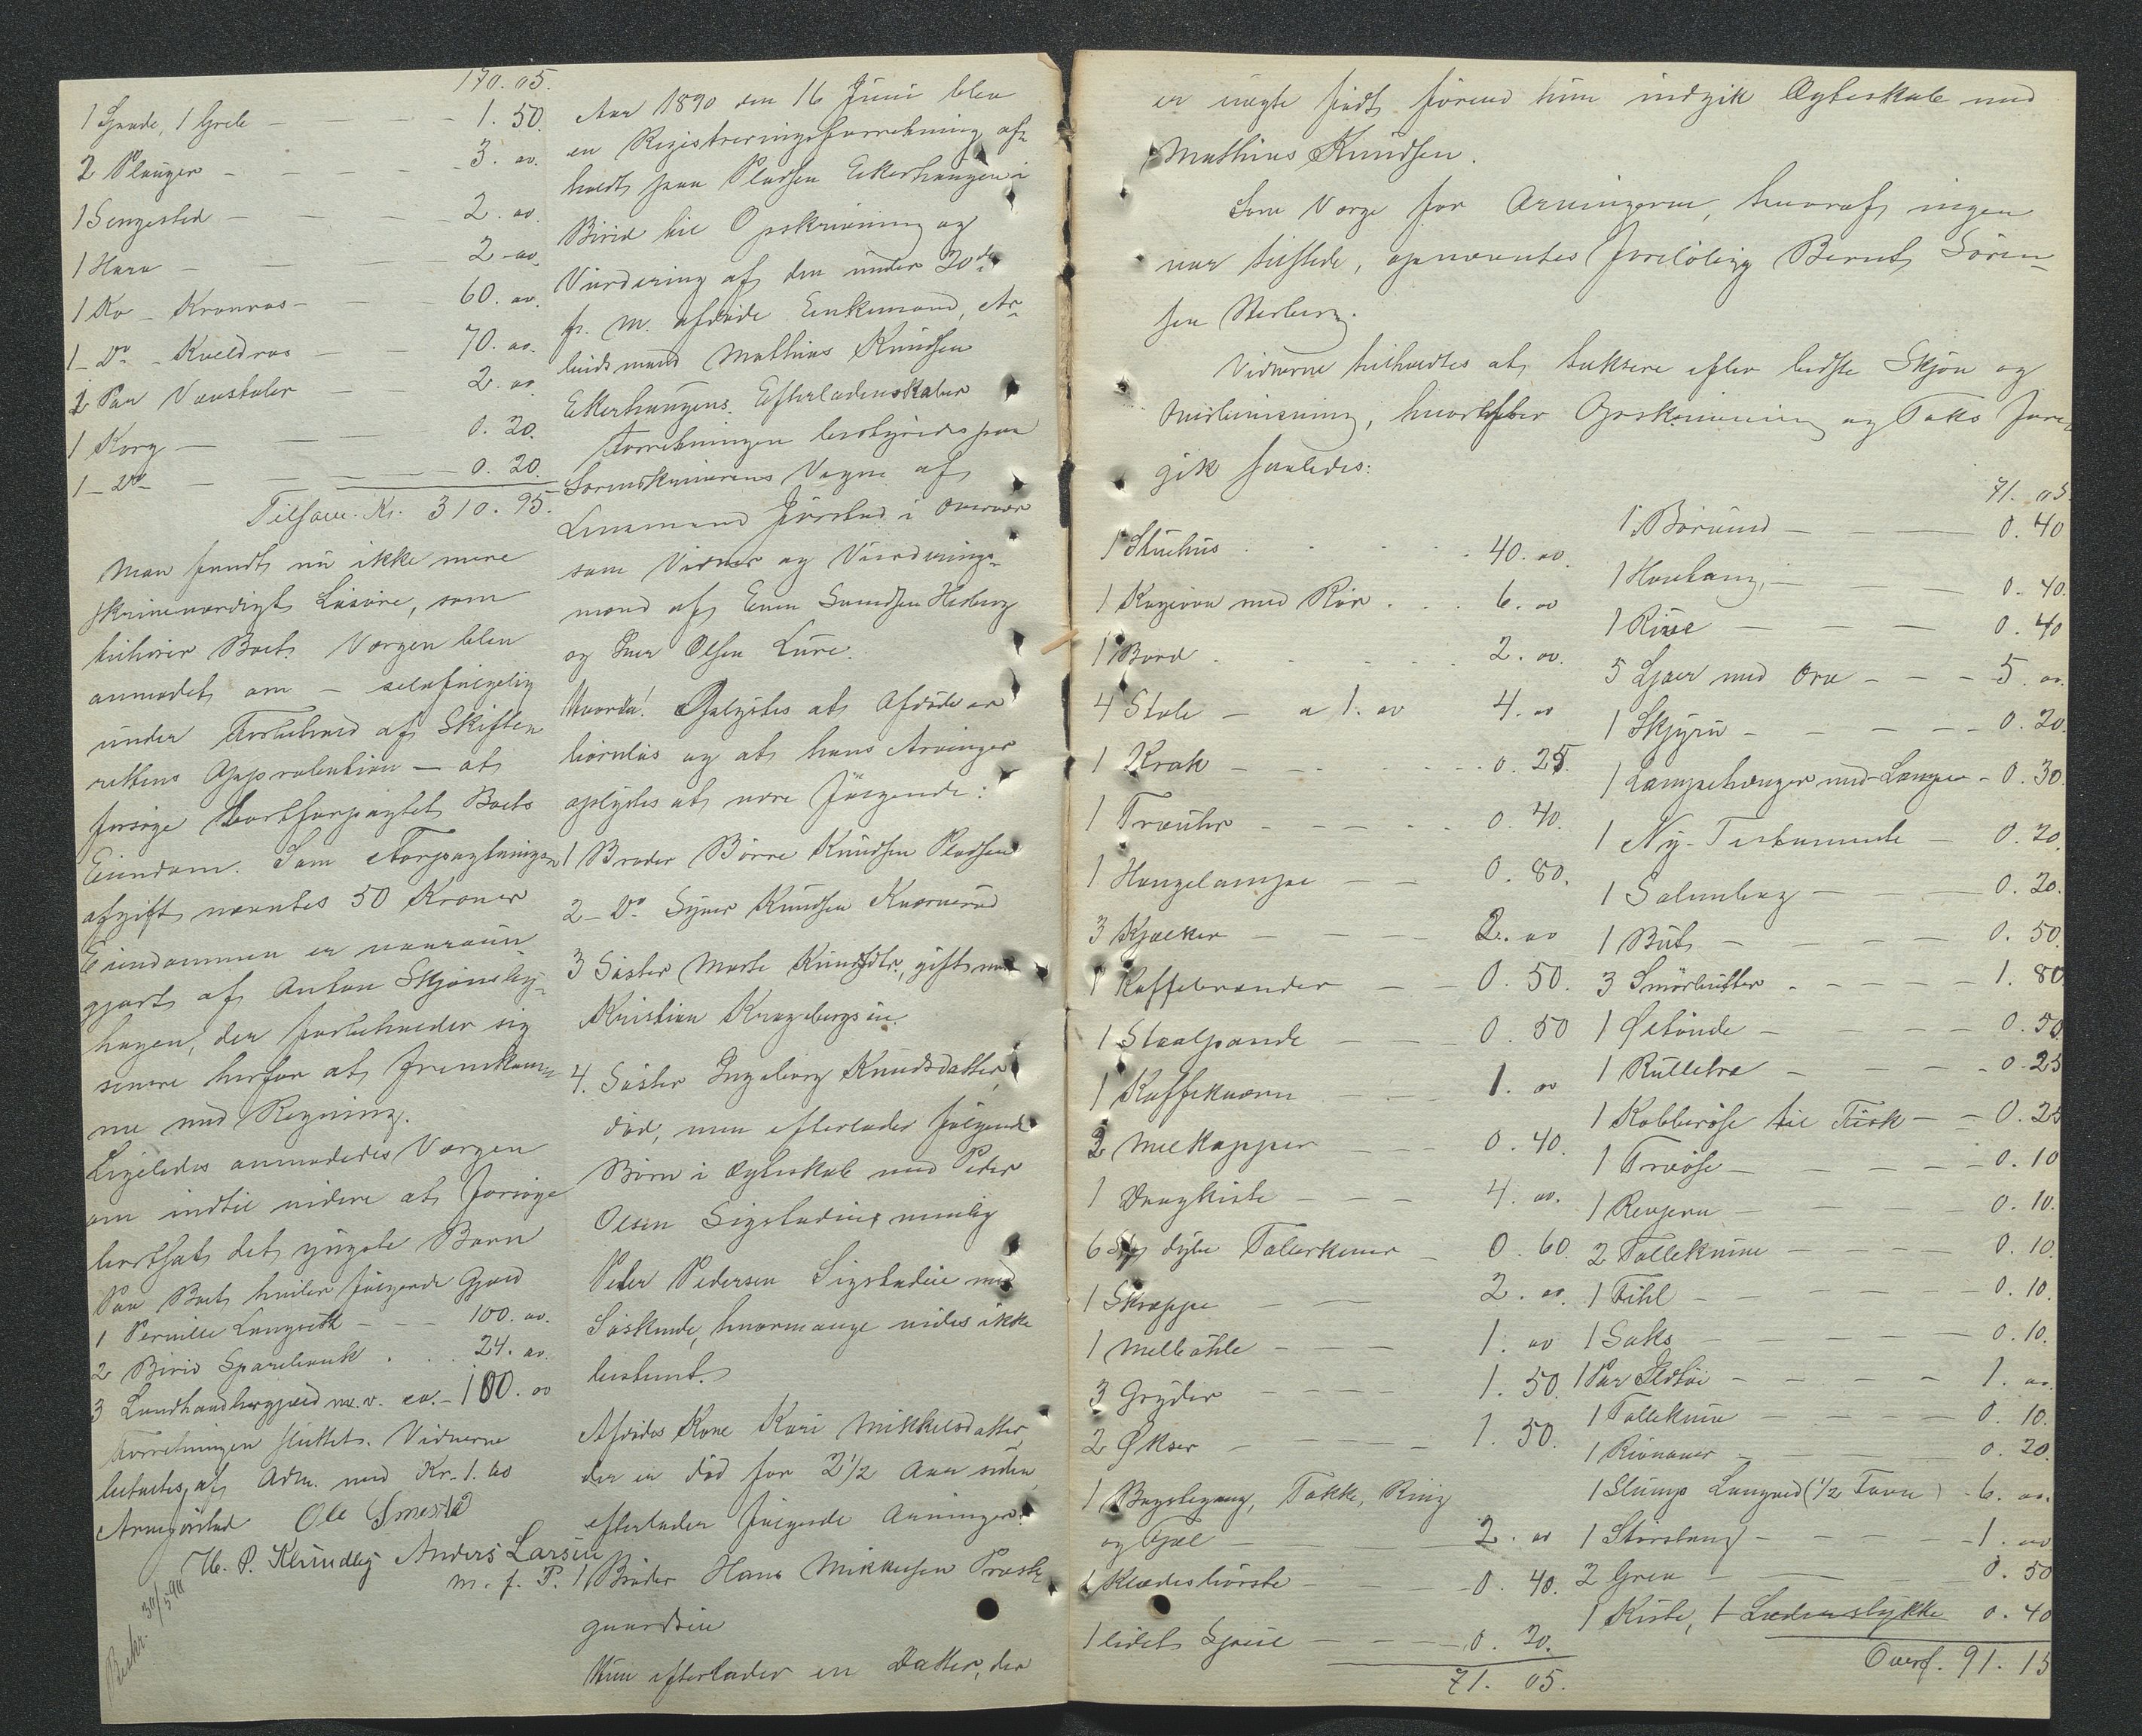 170.05.
1 Spade, 1 Greb - - - 1.50.
2 Plauger - - - - 3. oo.
1 Sengested - - - 2. oo.
1 Harv - - - 2. oo.
1 Ko - Kronros - - 60. oo.
1 - Do - Kveldros - - 70. oo.
2 Par Vævstoler - - 2. oo
1 Korg - - - 0.20.
1 - Do - - - 0.20.
Tilsam. Kr. 310.95.
Man fandt nu ikke mere
skriveværdigt Løsøre, som
tilhører Boet. Vergen blev
anmodet om - selvfølgelig
under Forbehold af Skifte-
rettens Approbation - at
forsøge bortforpagtet Boets
Eiendom. Som Forpagtnings-
afgift nævntes 50 Kroner
Eiendommen er
gjort af Anton Skjønsby-
hagen, der forbeholder sig
senere herfor at fremkom-
me med Regning.
Ligeledes anmodedes Vergen
om indtil videre at forsøge
bortsat det yngste Barn
Paa Boet hviler følgende Gjæld
1 Pernille Langseth - - - 100. oo.
2 Birid Sparebank . . . 24. oo.
3 Landhandlergjæld m.v. ca. - 100. oo
Forretningen sluttet. Vidnerne
betaltes af Adm. med Kr. 1.60
Arnejørstad Ole Smestad
H. P. Klundby Anders Larsen
m. f. P.
Beskr. 30/5 90
Aar 1890 den 16 Juni blev
en Registreringsforretning af-
holdt paa Pladsen Ekerhaugen i
Birid til Opskrivning og
Vurdering af den under 20de
f. M. afdøde Enkemand, Ar-
beidsmand Mathias Knudsen
Ekerhaugens Efterladenskaber
Forretningen bestyredes paa
Sorenskriverens Vegne af
Lensmand Jørstad i Overvær
som Vidner og Vurderings-
mænd af Even Svendsen Hesberg
og Iver Olsen Lure.
Hvorda! Oplystes at Afdøde er
barnløs og at hans Arvinger
oplystes at være følgende:
1 Broder Børre Knudsen Pladsen
2 - Do Syver Knudsen Kvernerud
3 Søster Marte Knudsdtr., gift med
Kristian Kragebergsie.
4. Søster Ingeborg Knudsdatter,
død, men efterlader følgende
Børn i Ægteskab med Peder
Olsen Sigstadeie nemlig
Peder Pedersen Sigstadeie med
Søskende, hvormange vides ikke
bestemt.
Afdødes Kone Kari Mikkelsdatter,
der er død for 2 1/2 Aar siden,
efterlader følgende Arvinger:
1 Broder Hans Mikkelsen Præste-
gaardseie
Hun efterlader en Datter, der
er uægte født førend hun indgik Ægteskab med
Mathias Knudsen.
Som Verge for Arvingerne, hvoraf ingen
var tilstede, opnævntes foreløbig Bernt Søren-
sen Hesberg.
Vidnerne tilholdtes at taksere efter bedste Skjøn og
Overbevisning, hvorefter Opskrivning og Takst fore-
gik saaledes:
1 Stuehus . . . . . 40. oo.
1 Kogeovn med Rør . . . 6. oo
1 Bord . . . . . 2. oo.
4 Stole - a 1. oo 4. oo
1 Krak - - - - 0.25.
1 Træuhr - - - - 0.40.
1 Hængelampe - - 0.80.
3 Kjælker - - - 2. oo
1 Kaffebrænder - - 0.50.
1 Staalpande - - 0.50
1 Kaffekværn - - - 1. oo
2 Melkopper - - - 0.40.
1 Dragkiste - - - 4. oo.
6 Stk dybe Tallerkener - 0.60.
1 Skræppe - - - 2. oo.
1 Melbøtte - - - 1. oo
3 Gryder - - - - 1.50.
2 Økser - - - - 1.50.
1 Bagstegang, Takke, Ring
og Fjæl - - - 2. oo
1 Klædesbørste - - - 0.40.
1 lidet Speil - - - 0.20.
71. 05.
71. 05
1 - - - 0.40
1 Hovtang - - - 0.40.
1 - - - 0.40
5 Ljaaer med Orv - - - 5. oo.
1 Skjyru - - - - 0.20.
1 Lampehænger med Lampe - 0.30.
1 Ny-Testamente - 0.20.
1 Salmebog - - 0.20.
1 Butt - - - - 0.50.
3 Smørbutter - - - - 1.80
1 Øltønde - - - - 0.50
1 Rulletræ - - - - 0.25
1 Kobberøse til Fisk - - 0.25
1 Træøse - - - - 0.10
1 Revjern - - - - 0.10.
2 Tolleknive - - - 0.10.
1 Fihl - - - - 0.10.
1 Saks - - - - 0.10.
1 Par - - - - 1. oo.
1 Tolleknive - - - - 0.10.
1 - - - 0.20.
1 Slump Langved (1/2 Favn) - 6. oo.
1 Størstang - - - 1. oo
2 Grev - - - 0.50
1 Kiste, 1 Læderstykke 0.40
Overf. 91.15